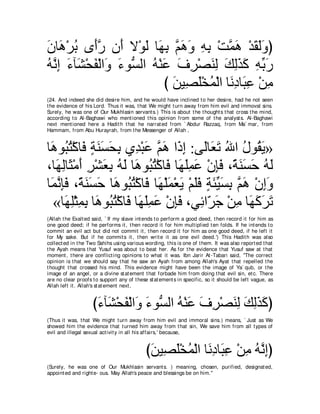 (وَلَقَدْ هَمَّتْ بِهِ وَهَمَّ بِهَا لَوْلا أَن رَّأَى بُرْهَانَ
رَبِّهِ كَذَلِكَ لِنَصْرِفَ عَنْهُ السُّوءَ وَالْفَحْشَآءَ إِنَّهُ
مِنْ عِبَادِنَا الْمُخْلَصِينَ )
(24. And indeed she did desire him, and he would have inclined to her desire, had he not seen
the evidence of his Lord. Thus it was, that We might turn away from him evil and immoral sins.
Surely, he was one of Our Mukhlasin servants.) This is about the thoughts that cross the mind,
according to Al-Baghawi who mentioned this opinion from some of the analysts. Al-Baghawi
next mentioned here a Hadith that he narrated from `Abdur Razzaq, from Ma`mar, from
Hammam, from Abu Hurayrah, from the Messenger of Allah .
«يَقُولُ اللهُ تَعَالَى: إِذَا هَمَّ عَبْدِي بِحَسَنَةٍ فَاكْتُبُوهَا
لَهُ حَسَنَةً، فَإِنْ عَمِلَهَا فَاكْتُبُوهَا لَهُ بِعَشْرِ أَمْثَالِهَا،
وَإِنْ هَمَّ بِسَيِّئَةٍ فَلَمْ يَعْمَلْهَا فَاكْتُبُوهَا حَسَنَةً، فَإِنَّمَا
تَرَكَهَا مِنْ جَرَّائِي، فَإِنْ عَمِلَهَا فَاكْتُبُوهَا بِمِثْلِهَا»
(Allah the Exalted said, `If my slave intends to perform a good deed, then record it for him as
one good deed; if he performs it, then record it for him multiplied ten folds. If he intends to
commit an evil act but did not commit it, then record it for him as one good deed, if he left it
for My sake. But if he commits it, then write it as one evil deed.') This Hadith was also
collected in the Two Sahihs using various wording, this is one of them. It was also reported that
the Ayah means that Yusuf was about to beat her. As for the evidence that Yusuf saw at that
moment, there are conflicting opinions to what it was. Ibn Jarir At-Tabari said, "The correct
opinion is that we should say that he saw an Ayah from among Allah's Ayat that repelled the
thought that crossed his mind. This evidence might have been the image of Ya`qub, or the
image of an angel, or a divine statement that forbade him from doing that evil sin, etc. There
are no clear proofs to support any of these statements in specific, so it should be left vague, as
Allah left it. Allah's statement next,
(كَذَلِكَ لِنَصْرِفَ عَنْهُ السُّوءَ وَالْفَحْشَآءَ)
(Thus it was, that We might turn away from him evil and immoral sins.) means, `Just as We
showed him the evidence that turned him away from that sin, We save him from all types of
evil and illegal sexual activity in all his affairs,' because,
(إِنَّهُ مِنْ عِبَادِنَا الْمُخْلَصِينَ)
(Surely, he was one of Our Mukhlasin servants. ) meaning, chosen, purified, designated,
appointed and righte- ous. May Allah's peace and blessings be on him."